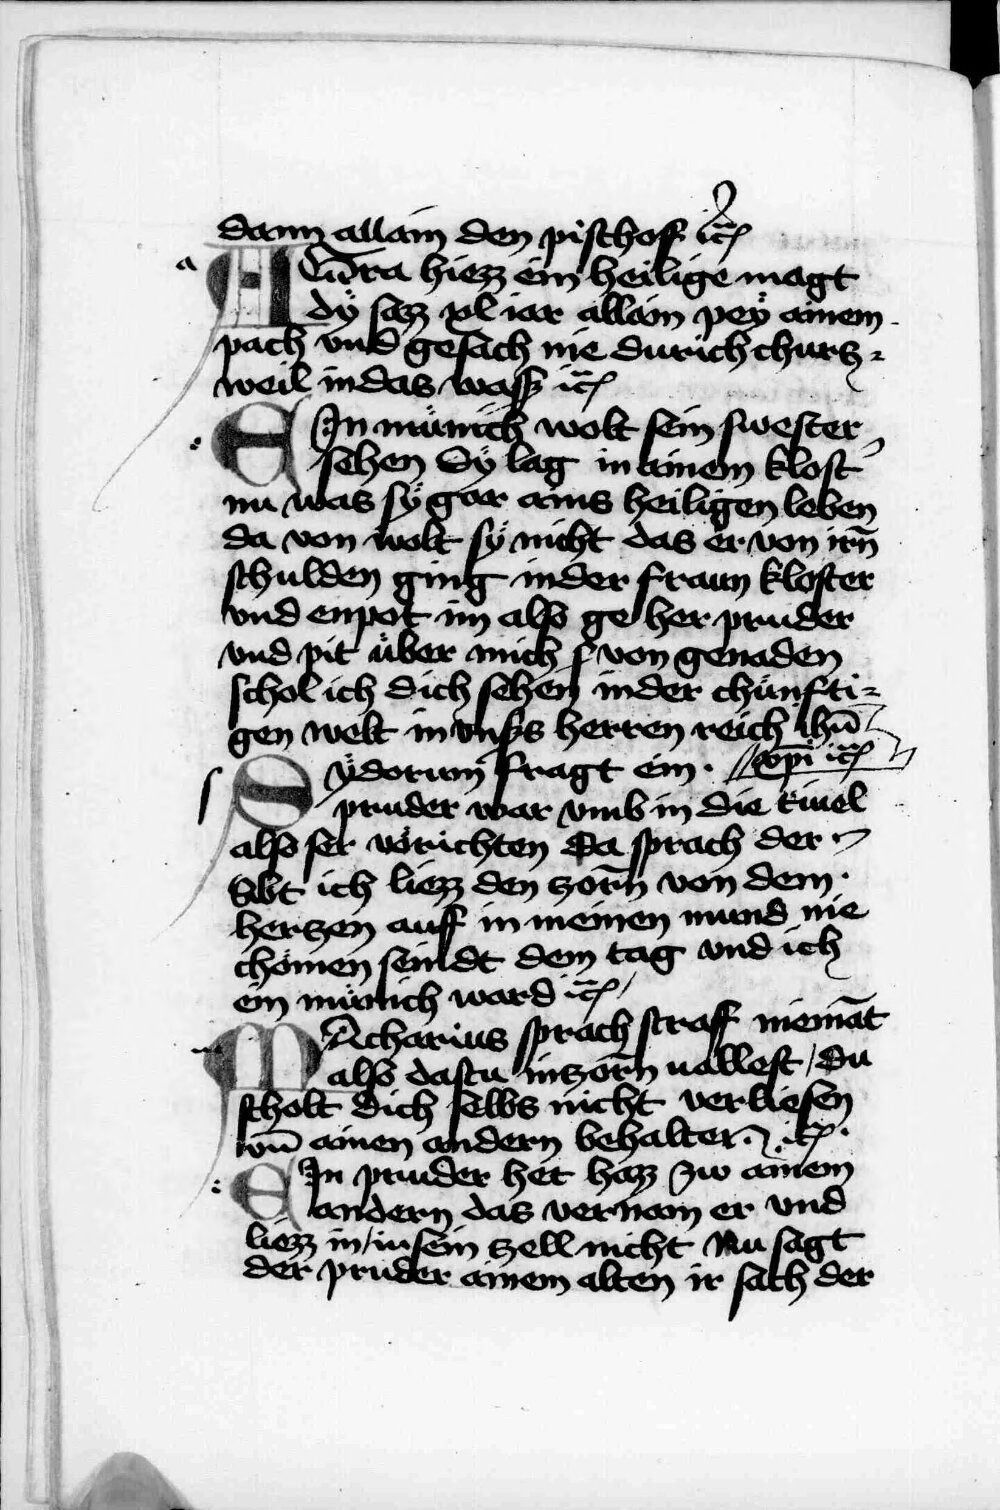 dann allain den pischof ⁊cꝭ
ACura hiezz ein heilige magt
dÿ sazz xl iar allain peÿ ainem
pach vnd gesach nie durich churcz⸗
weil in das wass⁊ ⁊cꝭ
EIn münich wolt sein swester
sehen Dÿ lag in ainem klost
nu was sÿ gar ains heiligen leben
da von wolt sÿ nicht das er von irn̄
schulden ging in der fraun kloster
vnd enpot im also ge her pruder
vnd pit über mich von genaden
schol ich dich sehen in der chünfti⸗
gen welt in vnsꝰs herren reich ihū
xp̄i ⁊cꝭ
Sÿdorum fragt ein
pruder war vmb in die tiuel
also ser vörichten Da sprach der
Abt ich liezz den zorn̄ von dem
herczen auff in meinen mund nie
chömen seindt dem tag vnd ich
ein münich ward ⁊cꝭ
MAcharius sprach straff niemāt
also dastu in zorn̄ uallest / Du
scholt dich selbs nicht verliesen
wn̄ ainen andern behalter ⁊cꝭ
EIn pruder het hazz zw ainem
andern das vernam er vnd
liezz in / in sein zell nicht Nu sagt
der pruder ainem alten ir sach der